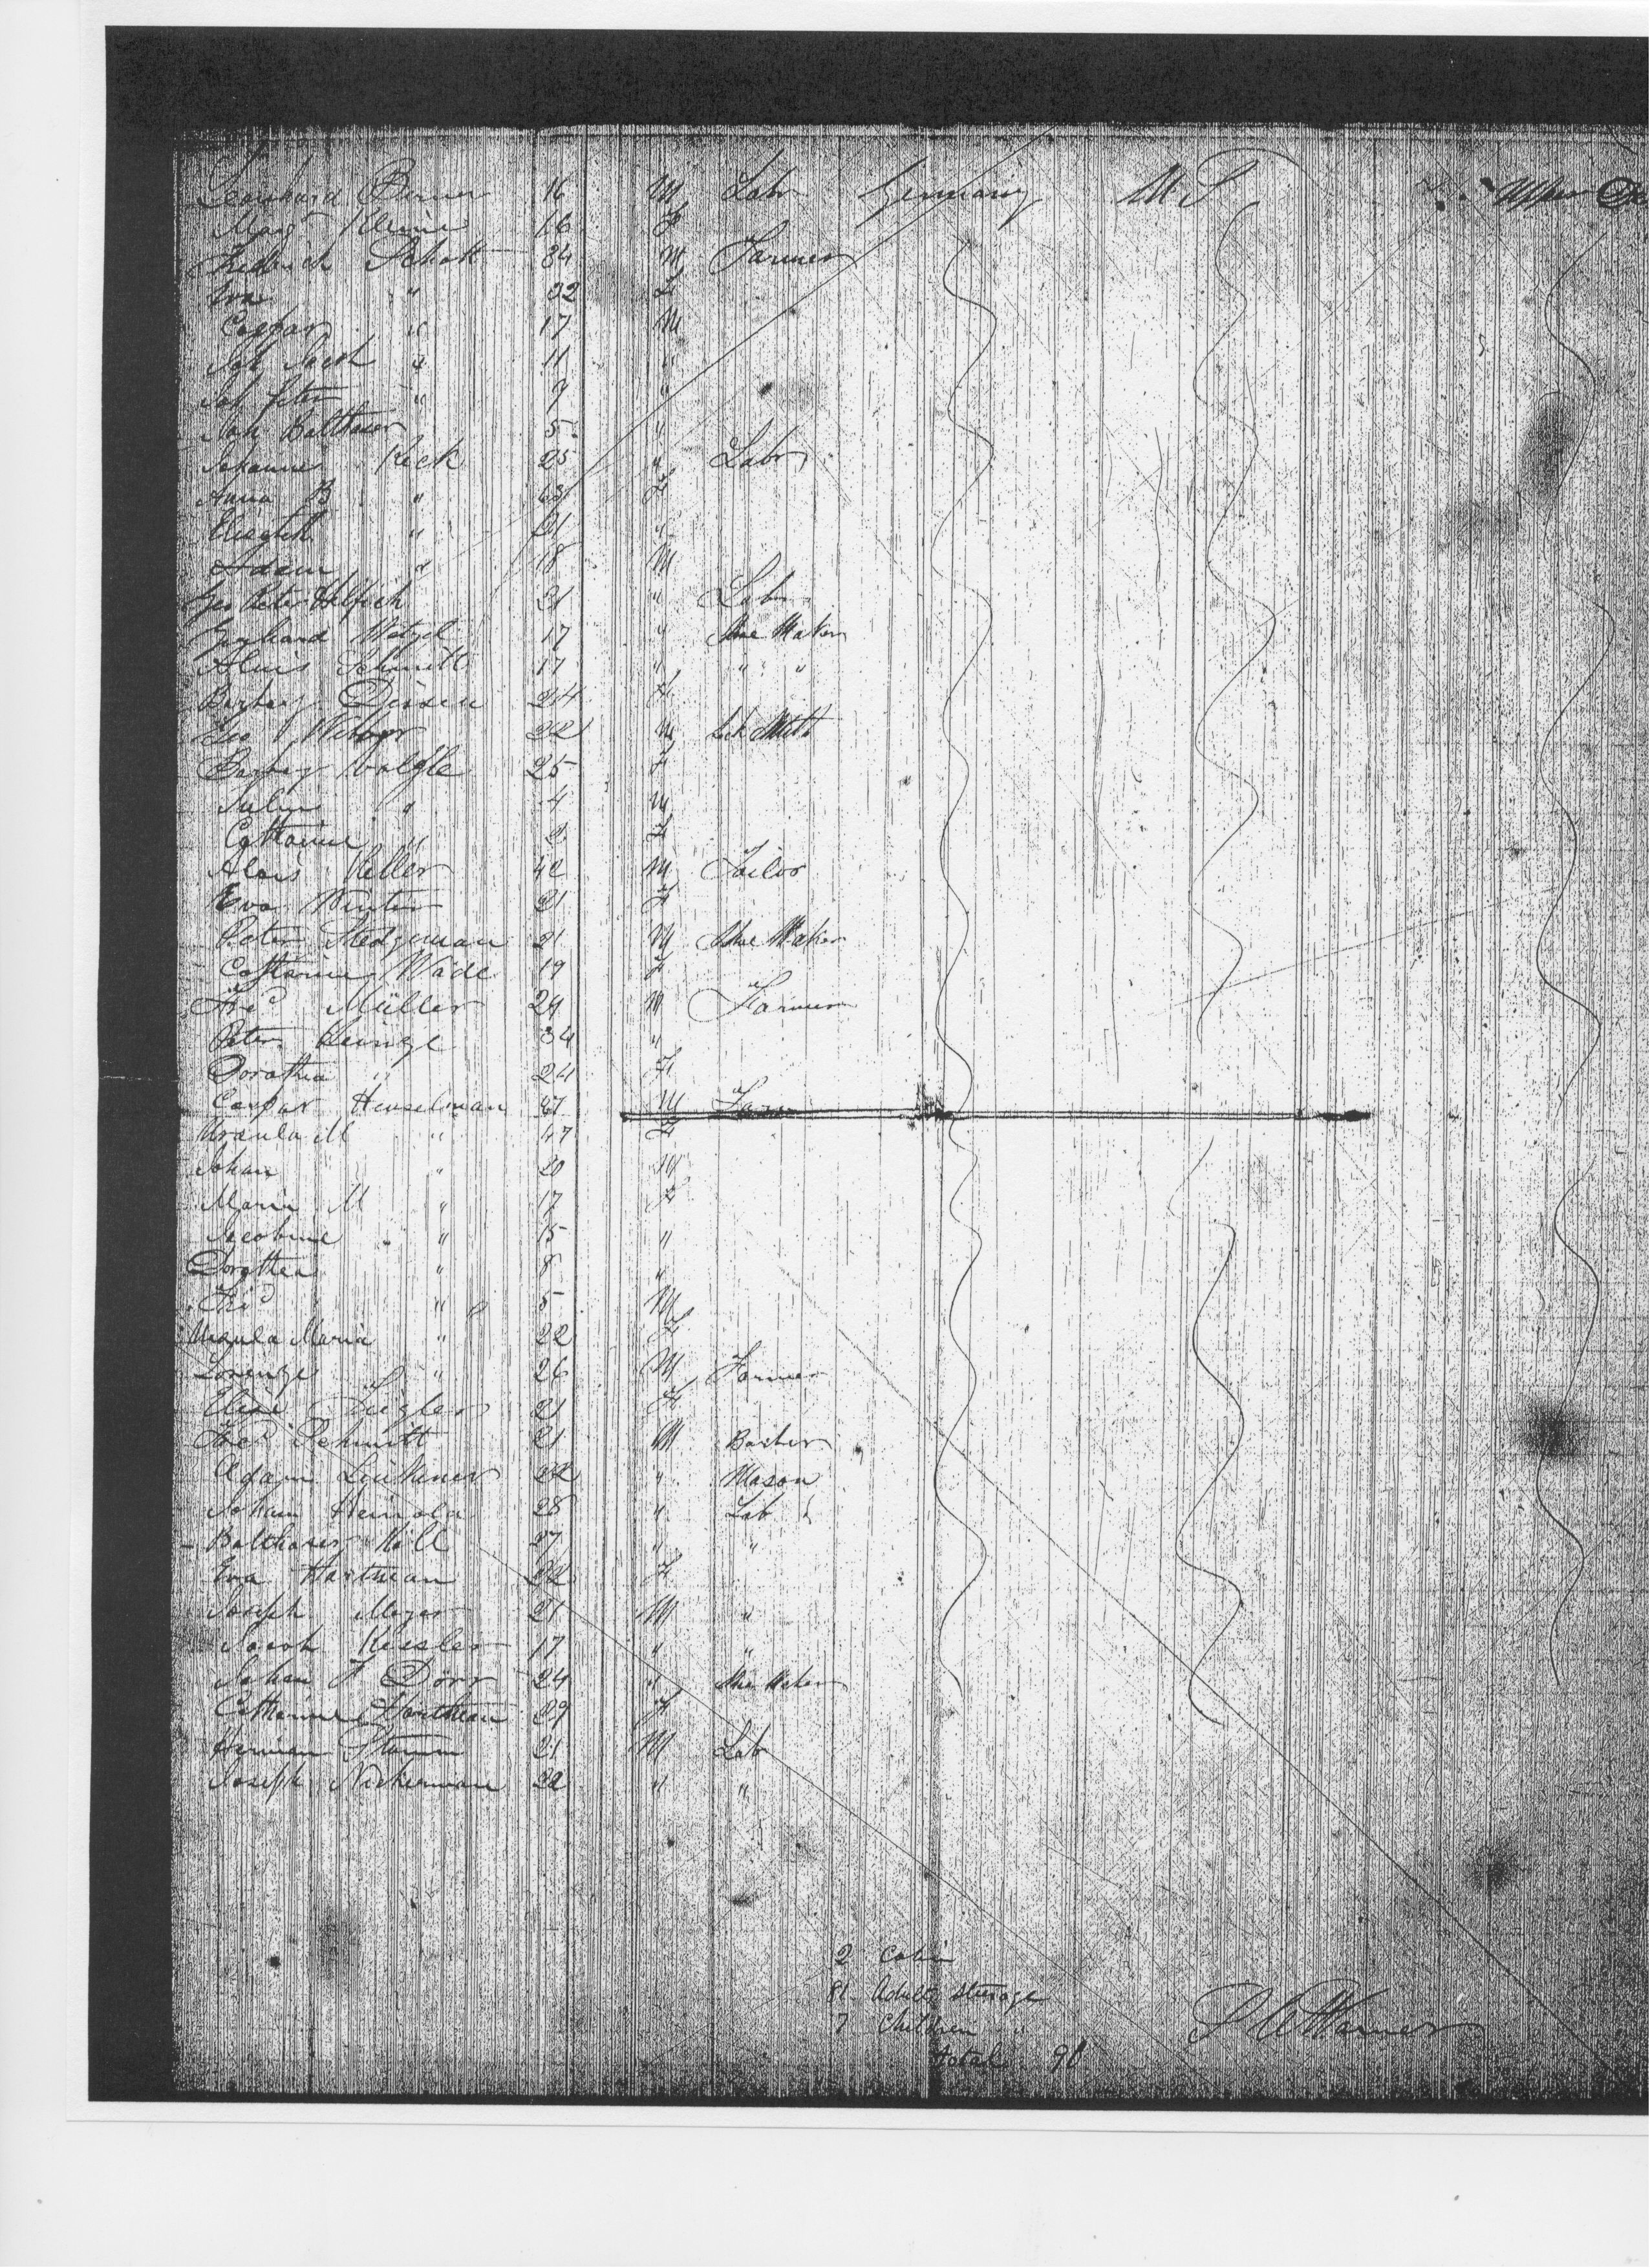 Leonhard Berner 16 M Labr Germany U S Upper
Marg Kleine 16 F
Frederich Schott 34 M Farmer
Eva " 32 F
Caspar " 17 M
Joh Jacob " 11 "
Joh Peter " 7 "
Joh Balthaser 5 "
Johanne Keck 25 " Labr
Anna B " 63 F
Elisabth " 21 "
Adam " 18 M
Geo Peter Helfrich 21 " Labr
Gerhard Wetzel 17 " Shoe Maker
Alois Schmitt 17 " " "
Barbary 24 F
Geo Webber 22 M Smith
Barbary 25 F
" 4 M
Catharine " 2 F
Alois Keller 42 M Tailor
Eva Winter 21 F
Peter Stedgeman 21 M Shoe Maker
Catharine Wade 19 F
Frd Müller 29 M Farmer
Peter Heinze 34 "
Dorathea " 24 F
Caspar Henselman 47 M Farmer
Ursula M " 47 F
Johan " 20 M
Maria M " 17 F
Jacobine " 15 "
Dorothea " 8 "
Frd " 5 M
Ursula Maria " 22 F
Lorenze " 26 M Farmer
Elise Ziegler 21 F
Frd Schmitt 21 M Barber
Adam 22 " Mason
Johann 28 " Lab
Balthaser Noll 27 " "
Eva Hartman 22 F
Joseph Meyer 21 M "
Jacob Kessler 17 " "
Johan P Dörr 24 " Shoe Maker
Catharine 29 F
Herman Stumm 21 M Lab
Joseph Nickerman 22 " "
2 Cabin
81 Adults steerage
7 Children "
total 90
Warner